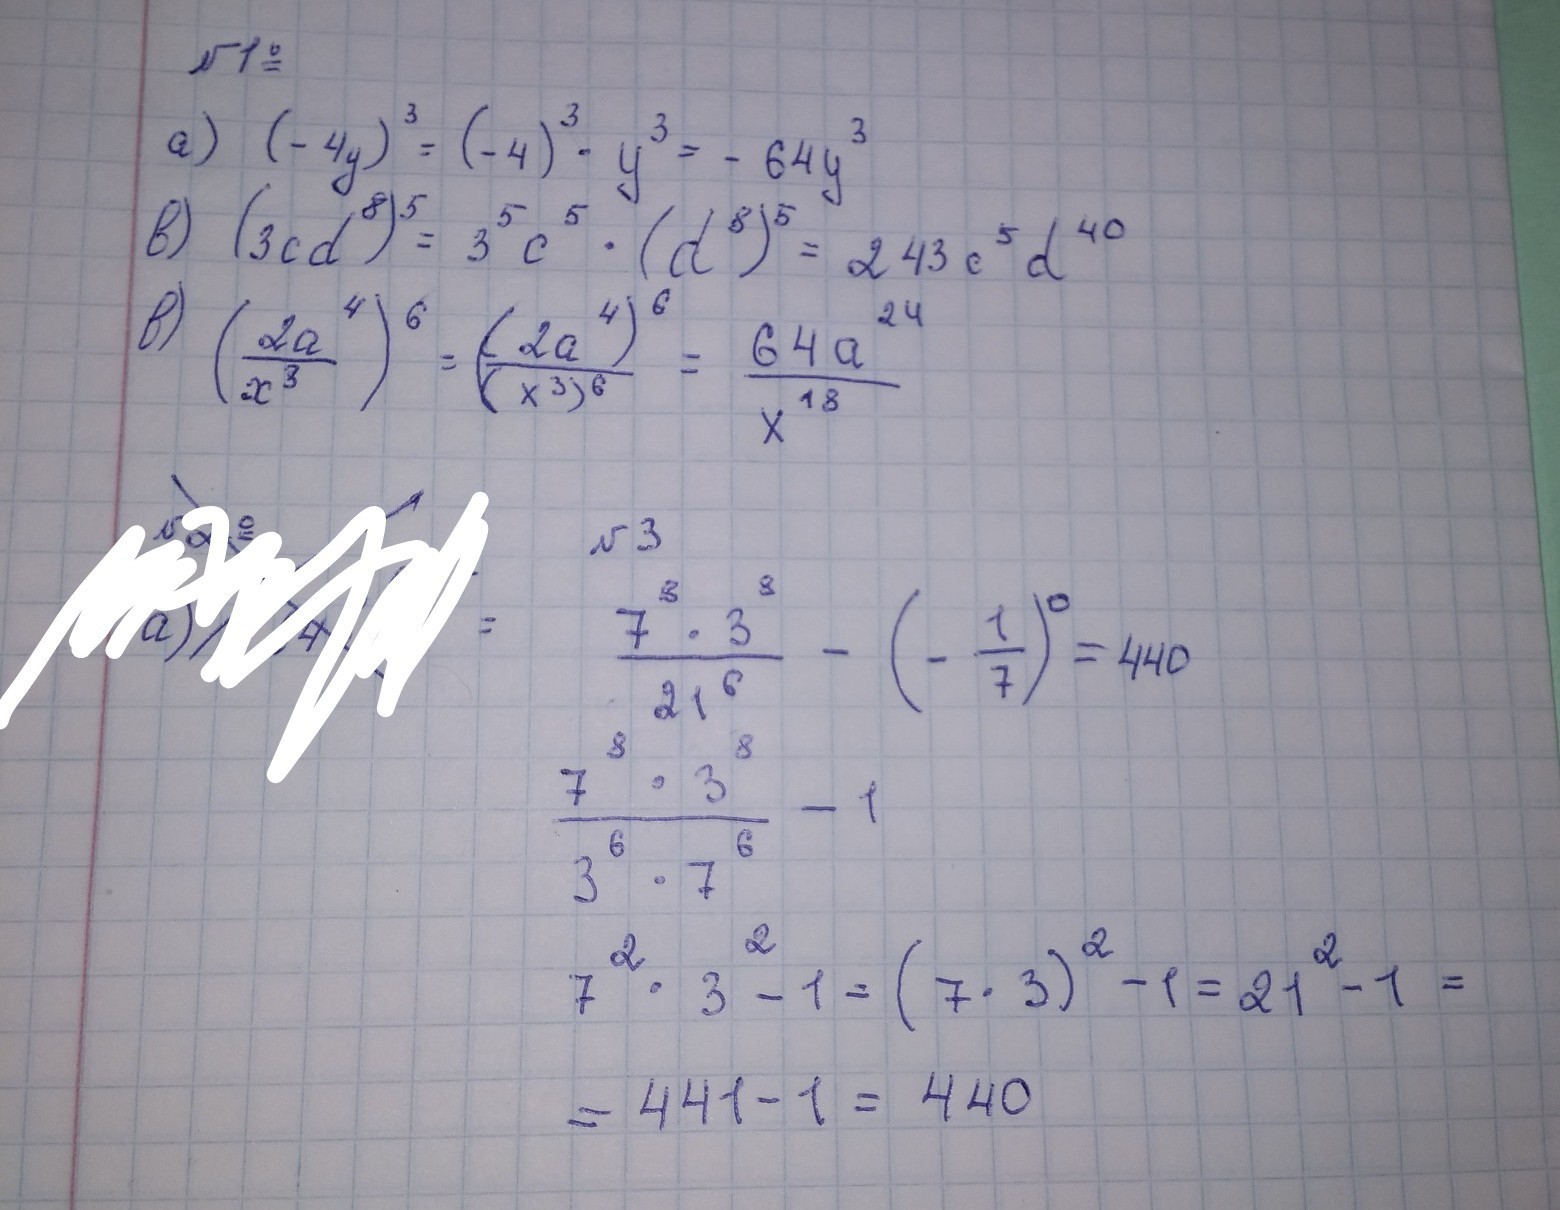 №1°
а) (-4y)³ = (-4)³ · y³ = -64y³
в) (3cd⁸)⁵ = 3⁵c⁵ · (d⁸)⁵ = 243c⁵d⁴⁰
в) (2a⁴/x³)⁶ = (2a⁴)⁶/(x³)⁶ = 64a²⁴/x¹⁸
№2°
а) 4 =
№3
7⁸ · 3⁸/21⁶ - (-1/7)⁰ = 440
7⁸ · 3⁸/3⁶ · 7⁶ - 1
7² · 3² - 1 = (7 · 3)² - 1 = 21² - 1 =
= 441 - 1 = 440